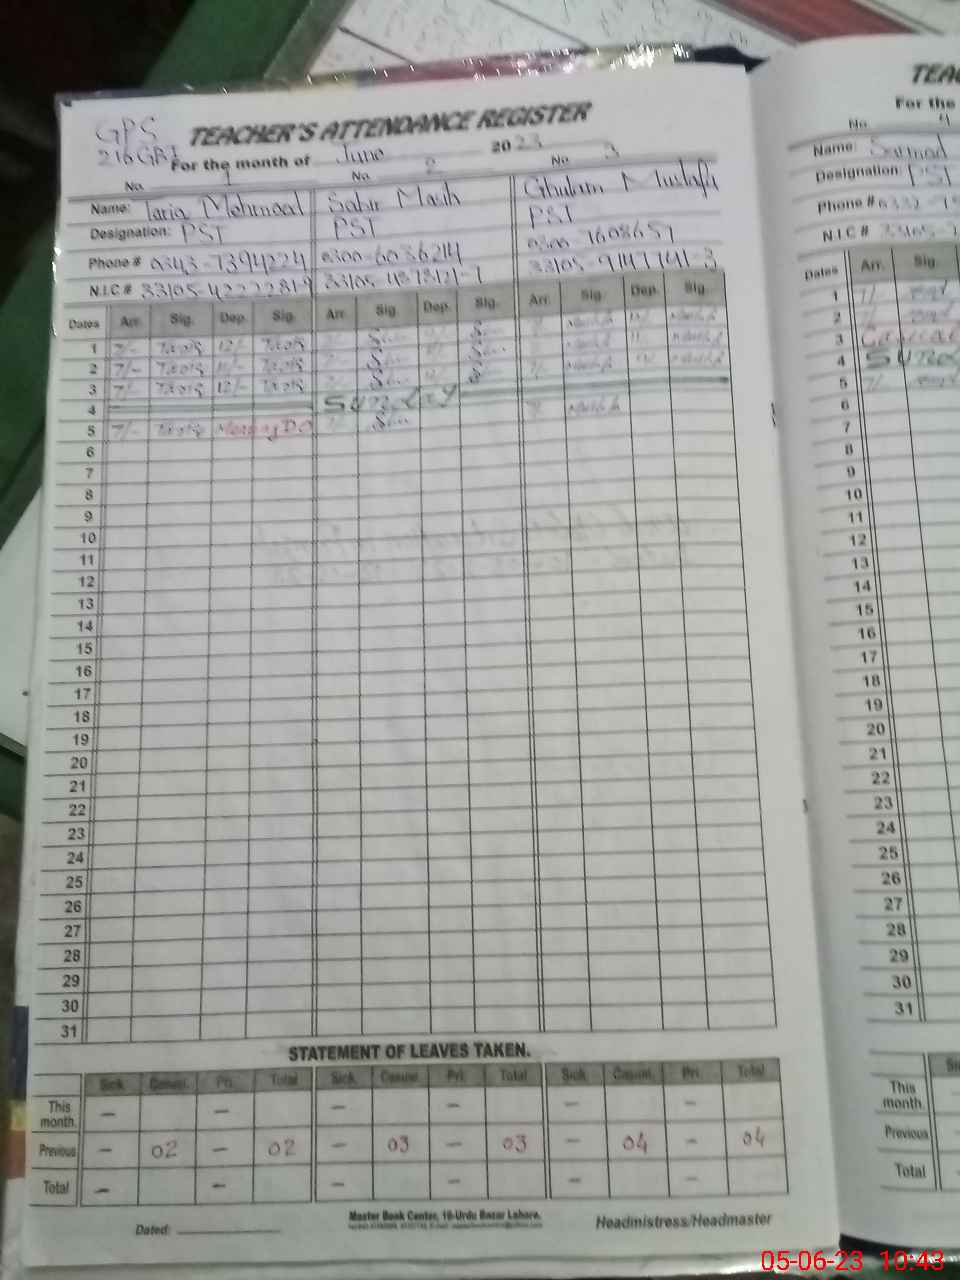 GPS
216GB1 TEACHER'S ATTENDANCE REGISTER
For the month of June 2023
No. 1 No. 2 No. 3
Name: Tariq Mehmood Sabir Masih Ghulam Mustafa
Designation: PST PST PST
Phone # 0343-7394224 0300-6036214 0300-7608651
N.I.C # 33105-4222281-9
Dates Arr. Sig. Dep. Sig. Arr. Sig. Dep. Sig. Arr. Sig. Dep. Sig.
1 7/- Tariq 12/- Tariq
2 7/- Tariq 11/- Tariq
3 7/- Tariq 12/- Tariq
4 Sunday
5 7/- Tariq
6
7
8
9
10
11
12
13
14
15
16
17
18
19
20
21
22
23
24
25
26
27
28
29
30
31
STATEMENT OF LEAVES TAKEN.
Sick Casual. Pri. Total Sick. Casual Pri. Total Sick. Casual. Pri. Total
This month. – – – – – –
Previous – 02 – 02 – 03 – 03 – 04 – 04
Total – – – – – –
Dated:
Master Book Center, 19-Urdu Bazar Lahore.
Headmistress/Headmaster
TEAC
For the
No. 4
Name: Sarmad
Designation: PST
Phone # 0332-
N.I.C # 33105-
Dates Arr. Sig.
1 7/-
2 7/-
3 Casual
4 Sunday
5 7/-
6
7
8
9
10
11
12
13
14
15
16
17
18
19
20
21
22
23
24
25
26
27
28
29
30
31
This month.
Previous
Total
05-06-23 10:43